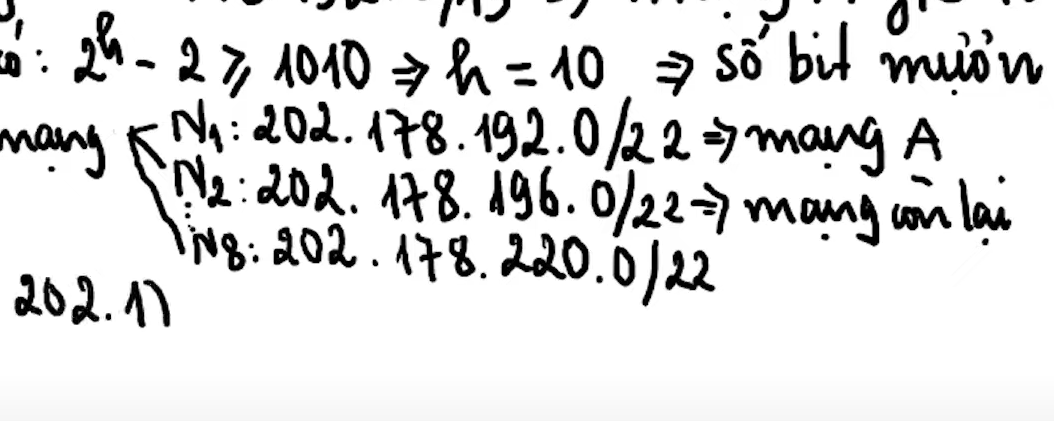 có: 2^h - 2 ≥ 1010 ⇒ h = 10 ⇒ số bit mượn
mạng N1: 202.178.192.0/22 ⇒ mạng A
N2: 202.178.196.0/22 ⇒ mạng còn lại
⋮
N8: 202.178.220.0/22
202.17